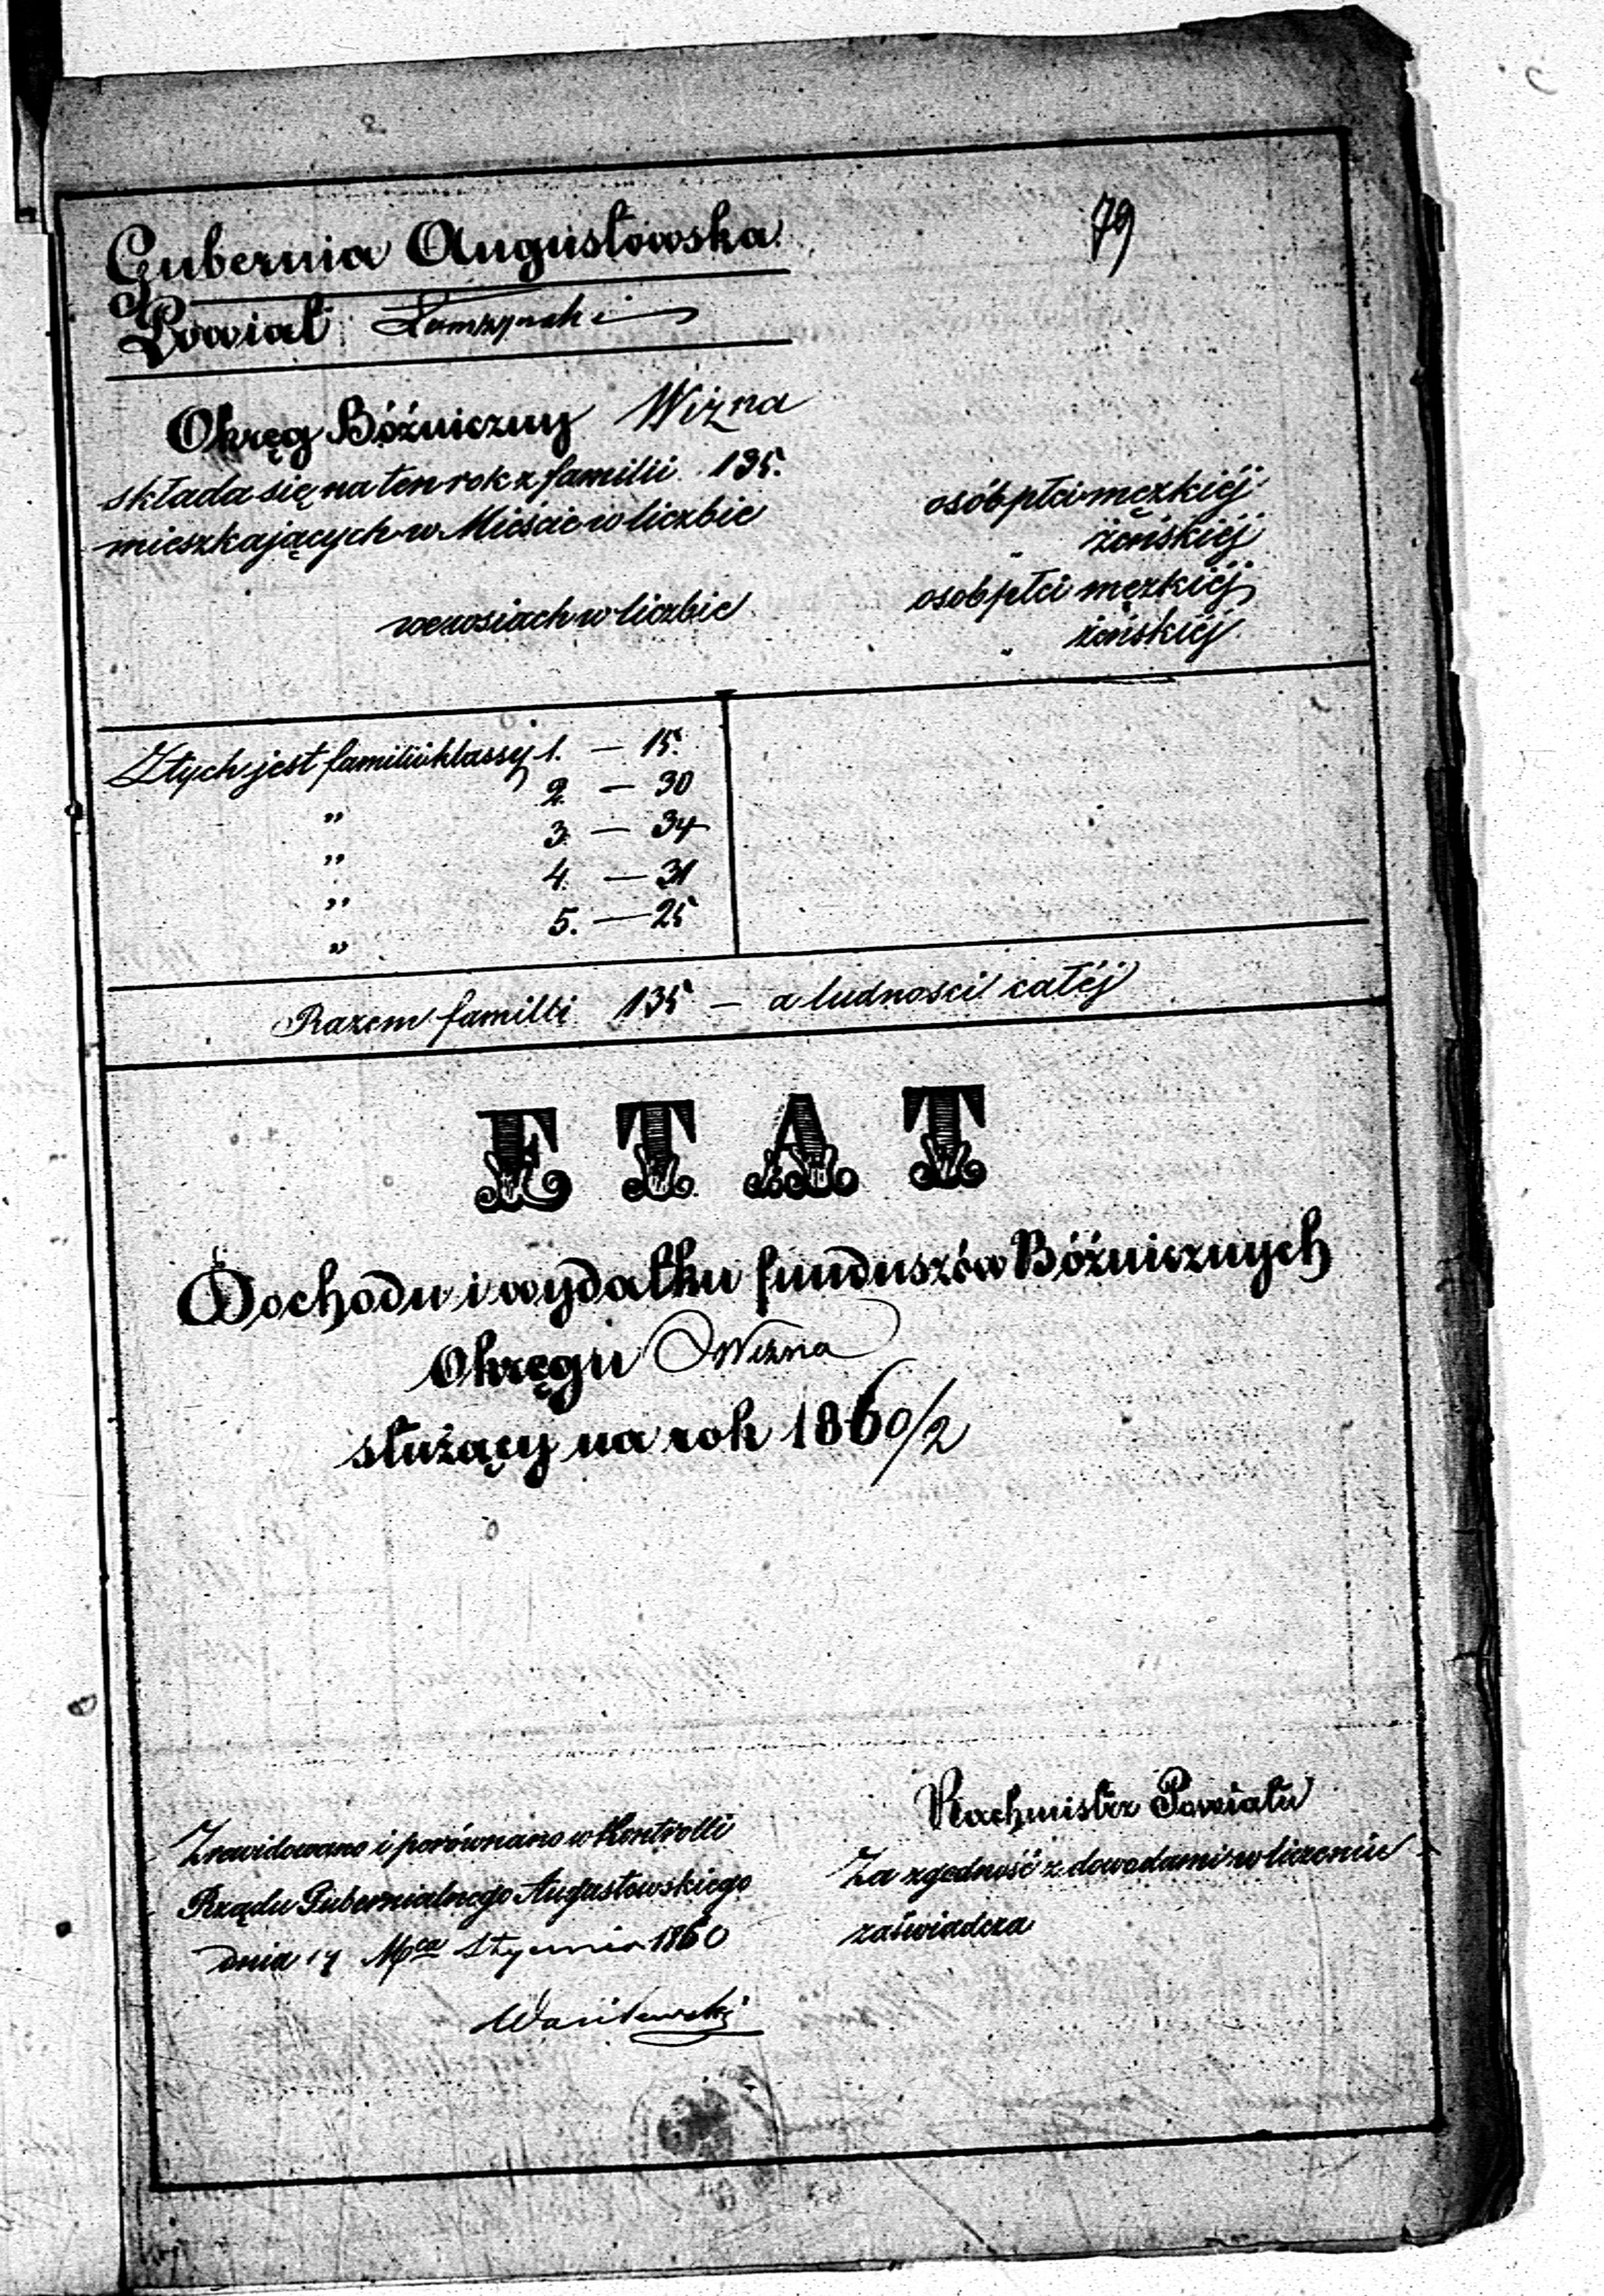 79
Gubernia Augustowska
Powiat Łomżyński
Okręg Bóźniczny Wizna
składa się na ten rok z familii 135.
mieszkających w Mieście w liczbie osób płci męzkiéj
„ żeńskiéj
we wsiach w liczbie osob płci męzkiéj
„ żeńskiéj
Z tych jest familii klassy 1. — 15.
„ 2. — 30
„ 3. — 34
„ 4. — 31
„ 5. — 25
Razem familii 135 — a ludności całéj
ETAT
Dochodu i wydatku funduszów Bóźnicznych
Okręgu Wizna
służący na rok 1860/2
Zrewidowano i porównano w Kontrolli
Rządu Gubernialnego Augustowskiego
dnia 17 Mca Stycznia 1860
Wasilewski
Rachmistrz Powiatu
Za zgodność z dowodami w liczeniu
zaświadcza